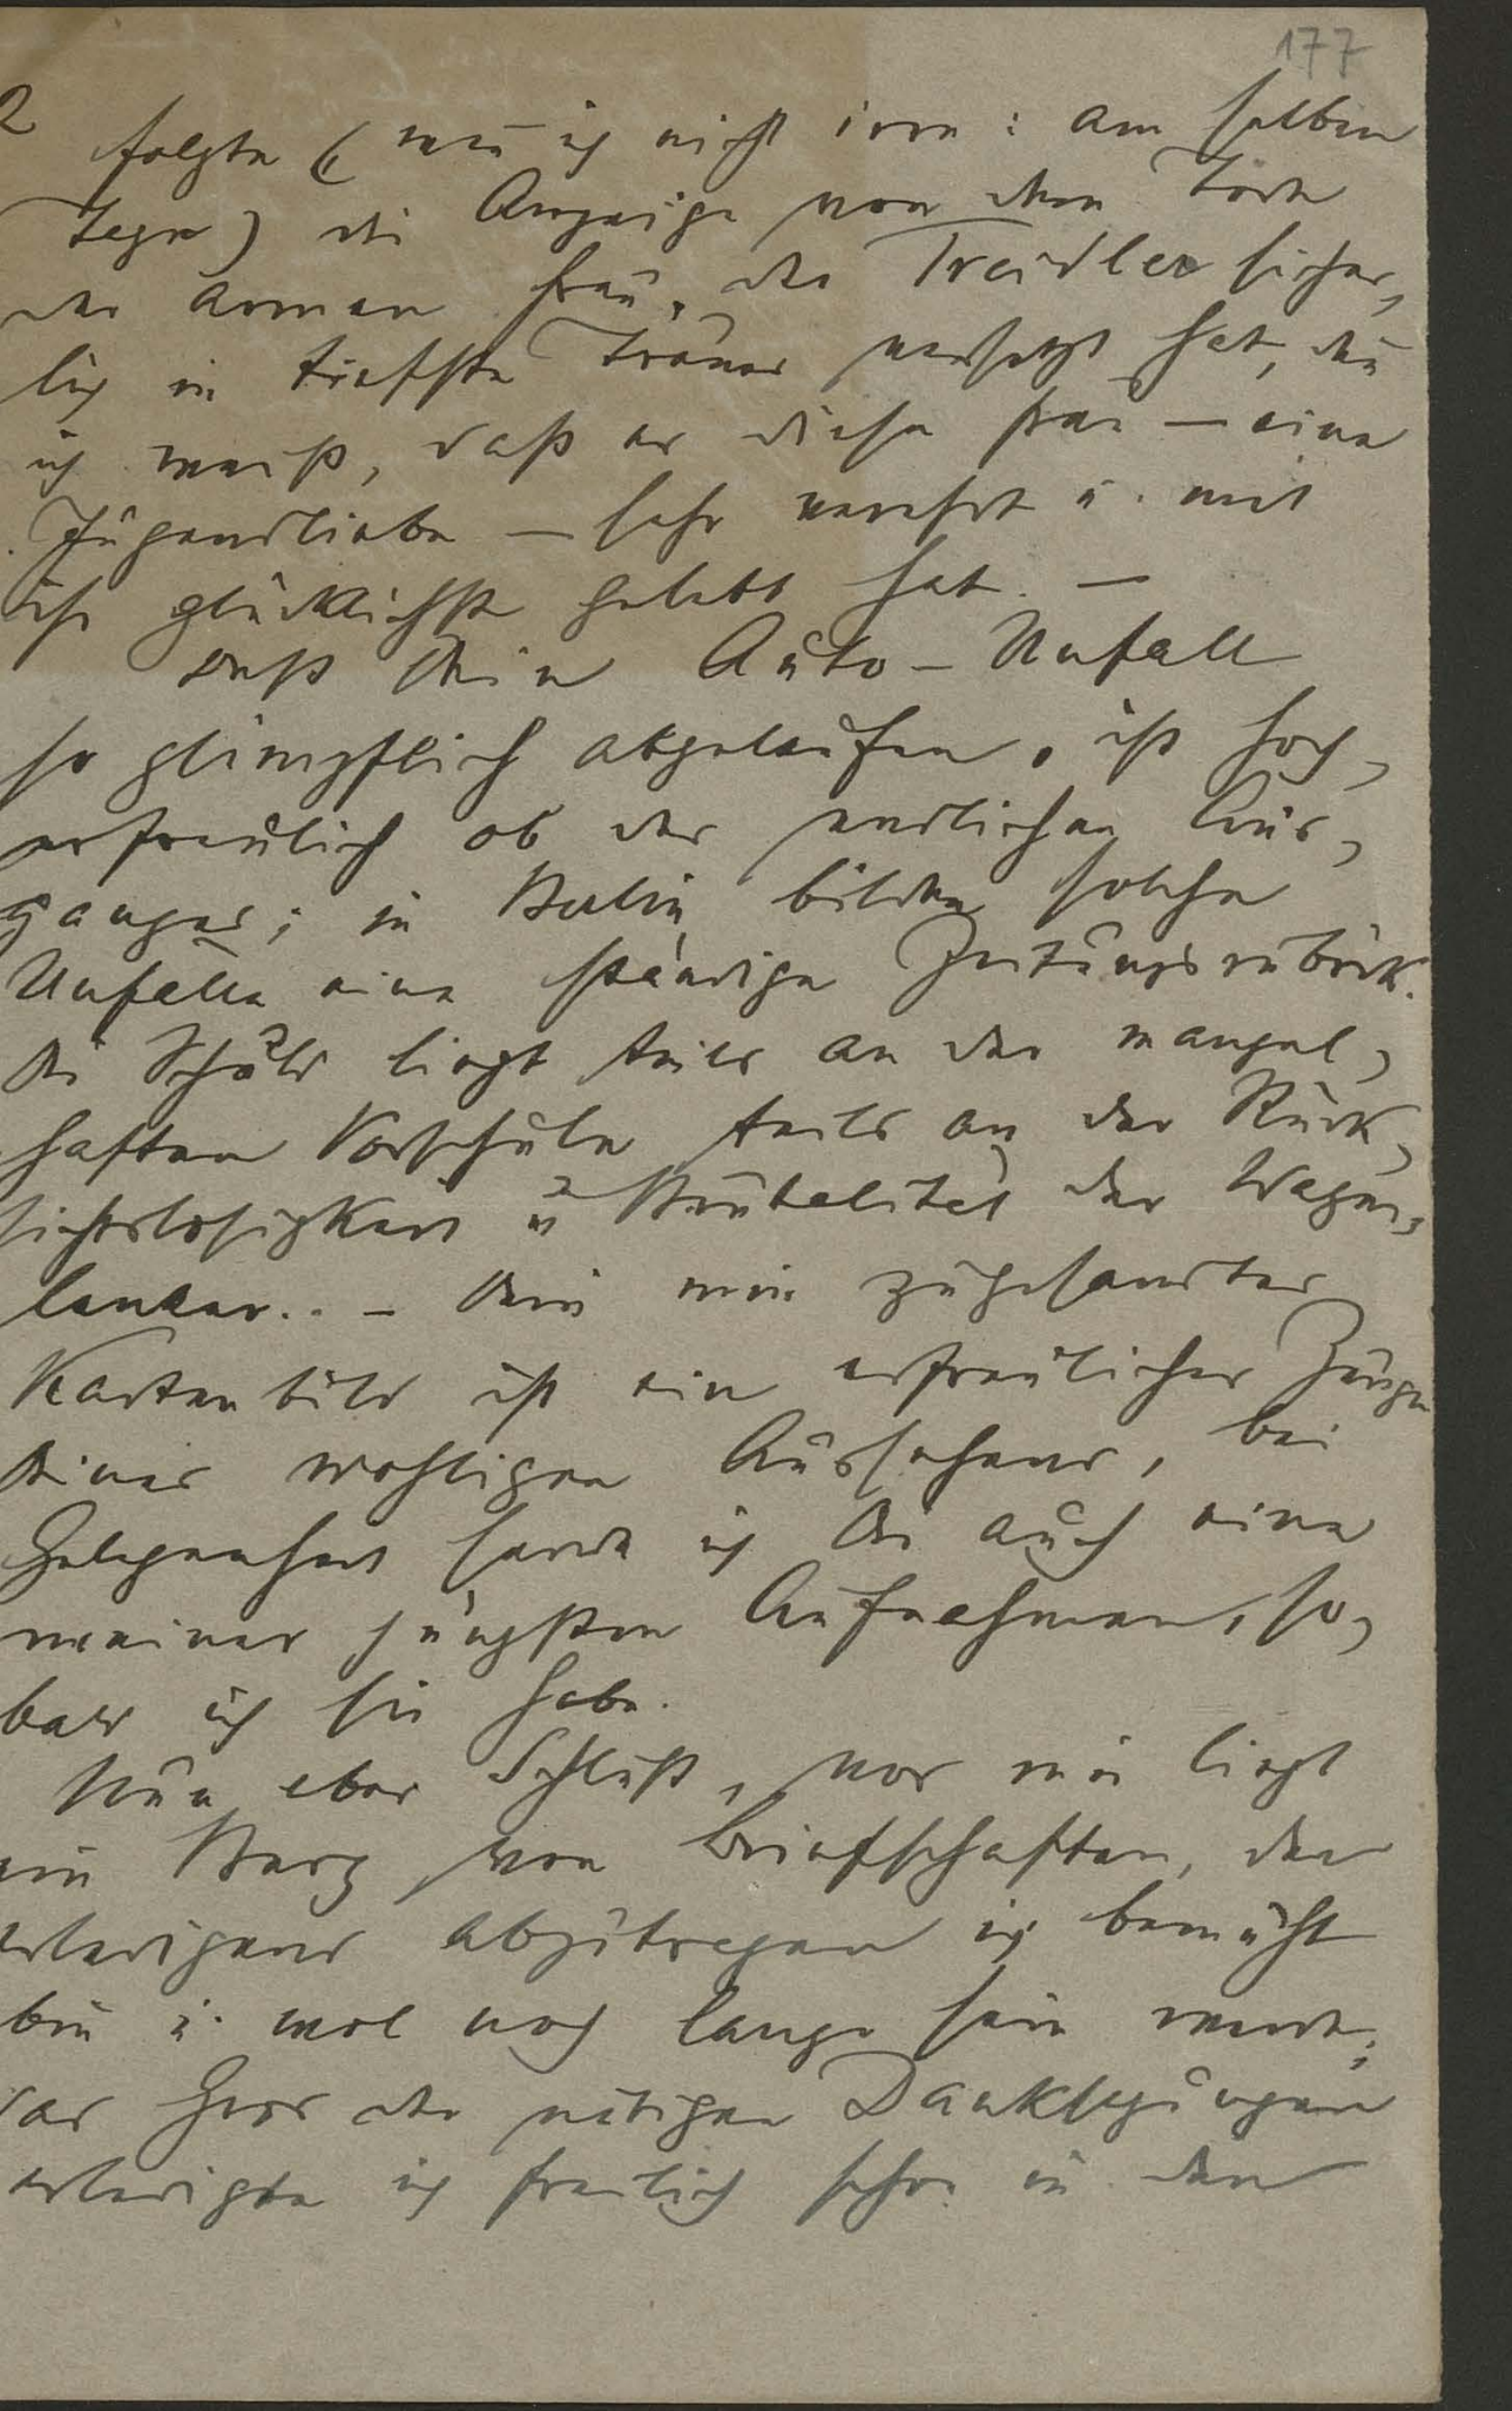 177
2
folgte (wen̄ ich nicht irre: am selben
Tage) die Anzeige von dem Tode
der armen Frau, die Treidler sicher-
lich in tiefste Trauer versetzt hat, da
ich weiß, daß er diese Frau — eine
Jugendliebe — sehr verehrt u. mit
ihr glücklichst gelebt hat. —
Daß Dein Auto-Unfall
so glimpflich abgelaufen, ist hoch-
erfreulich ob des endlichen Aus-
ganges; in Berlin bilden solche
Unfälle eine ständige Zeitungsrubrik.
Die Schuld liegt teils an der mangel-
haften Vorschule teils an der Rück-
sichtslosigkeit u Brutalität der Wagen-
lenker.. – Dein mir zugesandtes
Kartenbild ist ein erfreulicher Zeuge
Deines wohligen Aussehens, bei
Gelegenheit sende ich Dir auch eine
meiner jüngsten Aufnahmen, so-
bald ich sie habe.
Nun aber Schluß, vor mir liegt
ein Berg von Briefschaften, den
erledigend abzutragen ich bemüht
bin u. wol noch lange sein werde;
das Gros der nötigen Danksagungen
erledigte ich freilich schon in den